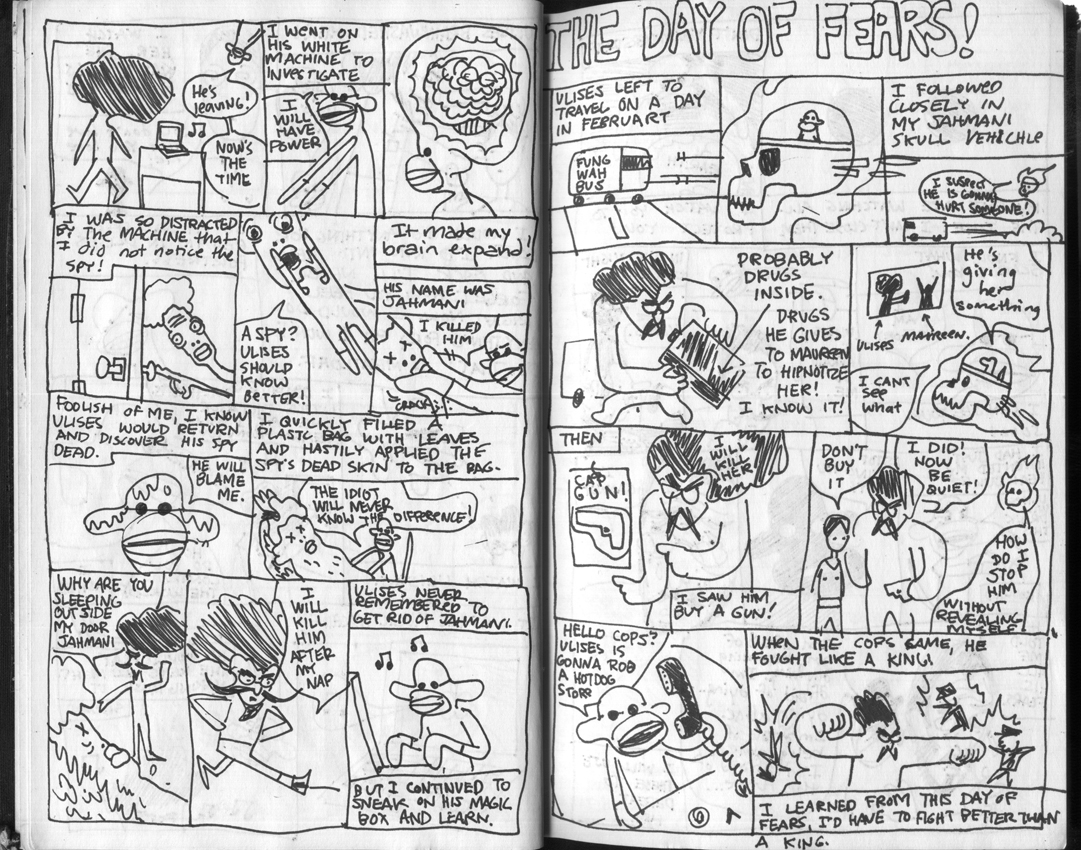 He's
leaving!
NOW'S
THE
TIME
I WENT ON
HIS WHITE
MACHINE TO
INVESTIGATE
I
WILL
HAVE
POWER
It made my
brain expand!
I WAS SO DISTRACTED
BY THE MACHINE that
I did not notice the
SPY!
A SPY?
ULISES
SHOULD
KNOW
BETTER!
HIS NAME WAS
JAHMANI
I KILLED
HIM
FOOLISH OF ME, I KNOW
ULISES WOULD RETURN
AND DISCOVER HIS SPY
DEAD.
HE WILL
BLAME
ME.
I QUICKLY FILLED A
PLASTC BAG WITH LEAVES
AND HASTILY APPLIED THE
SPY'S DEAD SKIN TO THE BAG.
THE IDIOT
WILL NEVER
KNOW THE DIFFERENCE!
WHY ARE YOU
SLEEPING
OUT SIDE
MY DOOR
JAHMANI
I
WILL
KILL
HIM
AFTER
MY
NAP
ULISES NEVER
REMEMBERED TO
GET RID OF JAHMANI.
BUT I CONTINUED TO
SNEAK ON HIS MAGIC
BOX AND LEARN.
THE DAY OF FEARS!
ULISES LEFT TO
TRAVEL ON A DAY
IN FEBRUARY
FUNG
WAH
BUS
I FOLLOWED
CLOSELY IN
MY JAHMANI
SKULL VEHICHLE
I SUSPECT
HE IS GONNA
HURT SOMEONE!
PROBABLY
DRUGS
INSIDE.
DRUGS
HE GIVES
TO MAUREEN
TO HIPNOTIZE
HER!
I KNOW IT!
He's
giving
her
something
ULISES
MAUREEN.
I CANT
SEE
WHAT
THEN
CAP
GUN!
I
WILL
KILL
HER!
I SAW HIM
BUY A GUN!
DON'T
BUY
IT
I DID!
NOW
BE
QUIET!
HOW
DO I
STOP
HIM
WITHOUT
REVEALING
MYSELF
HELLO COPS?
ULISES IS
GONNA ROB
A HOTDOG
STORE
WHEN THE COPS CAME, HE
FOUGHT LIKE A KING!
I LEARNED FROM THIS DAY OF
FEARS, I'D HAVE TO FIGHT BETTER THAN
A KING.